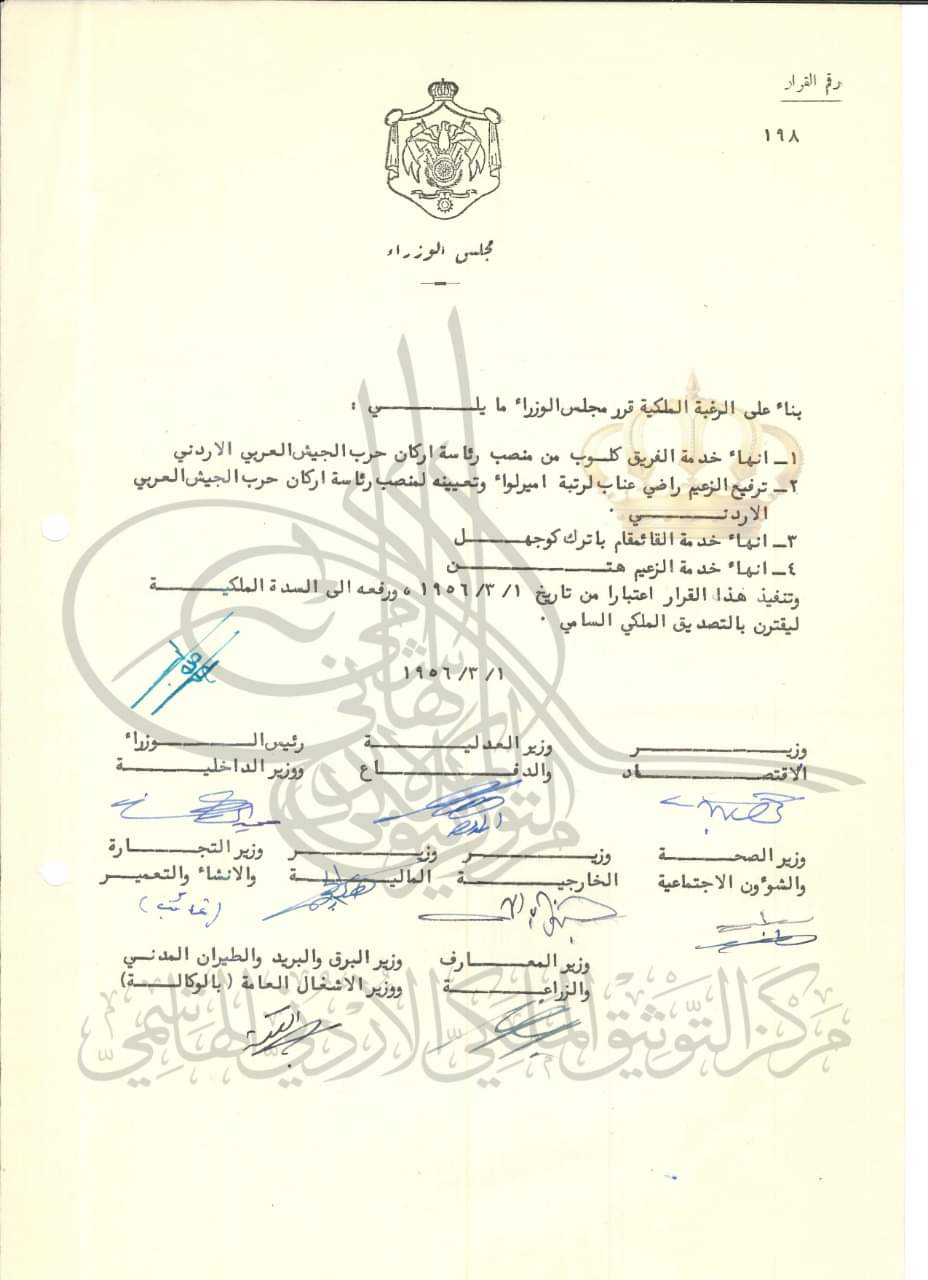 رقم القرار
١٩٨
مجلس الوزراء
بناء على الرغبة الملكية قرر مجلس الوزراء ما يلـــي :
١ـ انهاء خدمة الفريق كلـوب من منصب رئاسة اركان حرب الجيش العربي الاردني
٢ـ ترفيع الزعيم راضي عناب لرتبة اميرلواء وتعيينه لمنصب رئاسة اركان حرب الجيش العربي
الاردنـــي .
٣ـ انهاء خدمة القائمقام باترك كوجهـــل
٤ـ انهاء خدمة الزعيم هتـــن
وتنفيذ هذا القرار اعتبارا من تاريخ ١/ ٣/ ١٩٥٦ ، ورفعه الى السدة الملكيـــة
ليقترن بالتصديق الملكي السامي .
١/ ٣/ ١٩٥٦
وزيـــر وزير العدليـــة رئيس الـــوزراء
الاقتصـــاد والدفـــاع ووزير الداخليـــة
وزير الصحـــة وزيـــر وزيـــر وزير التجـــارة
والشوءون الاجتماعية الخارجيـــة الماليـــة والانشاء والتعميـــر
(غائب)
وزير المعـــارف وزير البرق والبريد والطيران المدني
والزراعـــة ووزير الاشغال العامة (بالوكالـــة)
مركز التوثيق الملكي الاردني الهاشمي